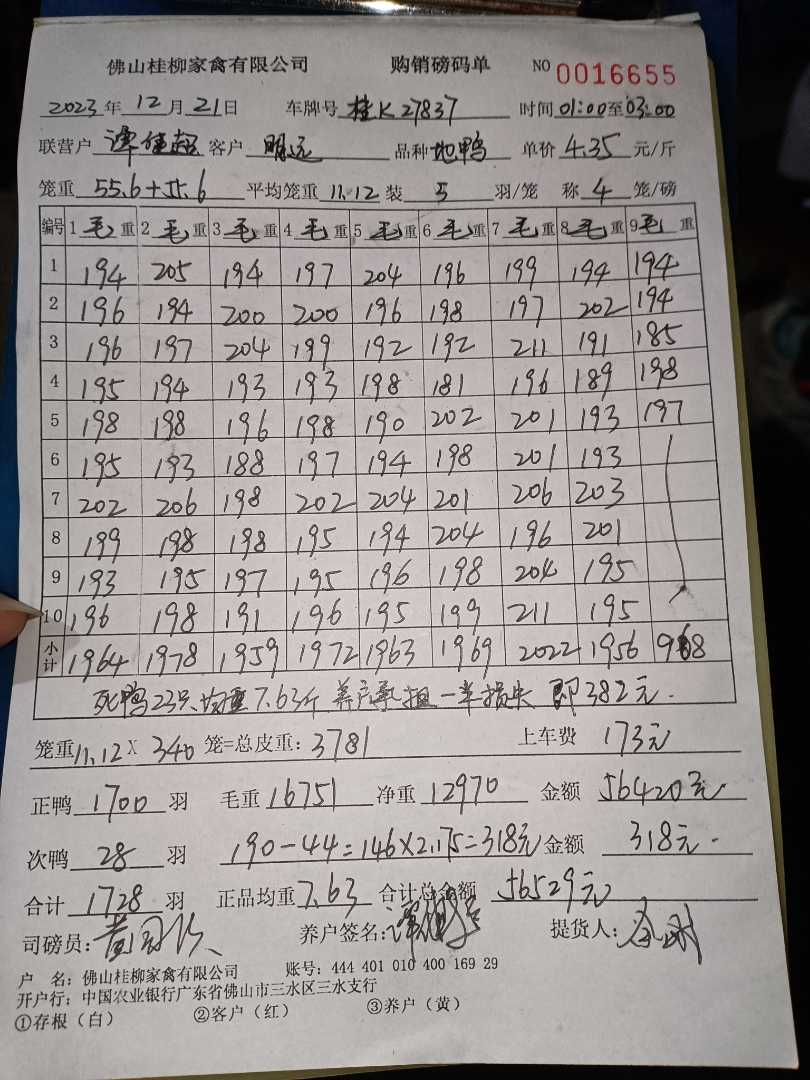 佛山桂柳家禽有限公司 购销磅码单 NO 0016655
2023年12月21日 车牌号 桂K27837 时间 01:00至03:00
联营户 谭健超 客户 明远 品种 地鸭 单价 4.35 元/斤
笼重 55.6+55.6 平均笼重 11.12 装 5 羽/笼 称 4 笼/磅
编号 1毛重 2毛重 3毛重 4毛重 5毛重 6毛重 7毛重 8毛重 9毛重
1 194 205 194 197 204 196 199 194 194
2 196 194 200 200 196 198 197 202 194
3 196 197 204 199 192 192 211 191 185
4 195 194 193 193 198 181 196 189 198
5 198 198 196 198 190 202 201 193 197
6 195 193 188 197 194 198 201 193
7 202 206 198 202 204 201 206 203
8 199 198 198 195 194 204 196 201
9 193 195 197 195 196 198 204 195
10 196 198 191 196 195 199 211 195
小计 1964 1978 1959 1972 1963 1969 2022 1956 968
死鸭23只均重7.63斤 养户承担一半损失 即382元.
笼重 11.12 X 340 笼=总皮重: 3781 上车费 173元
正鸭 1700 羽 毛重 16751 净重 12970 金额 56420元
次鸭 28 羽 190-44=146×2.175=318元 金额 318元.
合计 1728 羽 正品均重 7.63 合计总金额 56529元
司磅员: 养户签名: 提货人:
户 名: 佛山桂柳家禽有限公司 账号: 444 401 010 400 169 29
开户行: 中国农业银行广东省佛山市三水区三水支行
①存根(白) ②客户(红) ③养户(黄)